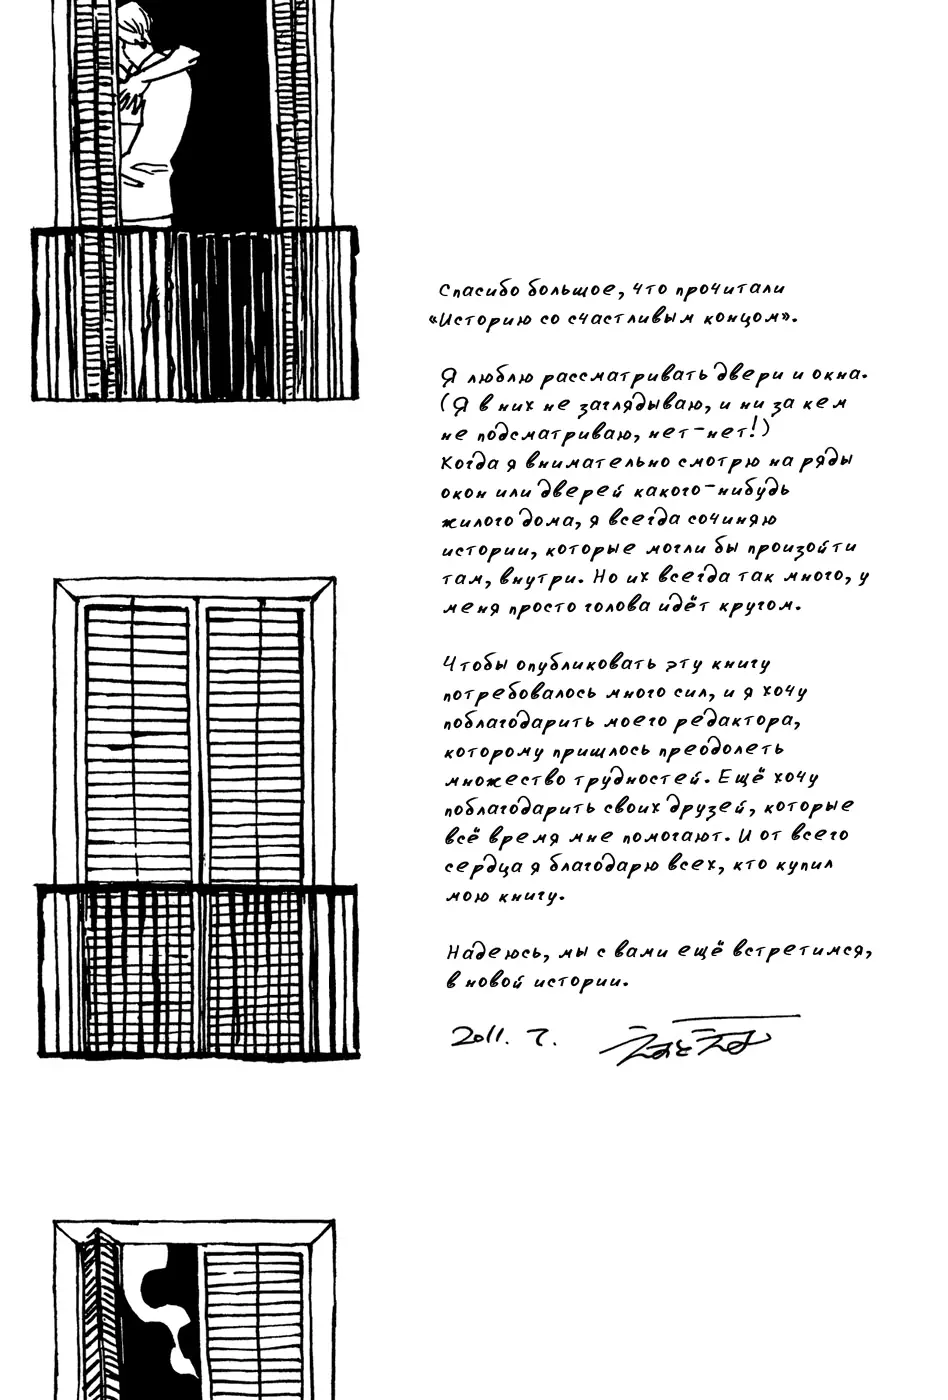 Спасибо большое, что прочитали
«Историю со счастливым концом».
Я люблю рассматривать двери и окна.
(Я в них не заглядываю, и ни за кем
не подсматриваю, нет-нет!)
Когда я внимательно смотрю на ряды
окон или дверей какого-нибудь
жилого дома, я всегда сочиняю
истории, которые могли бы произойти
там, внутри. Но их всегда так много, у
меня просто голова идёт кругом.
Чтобы опубликовать эту книгу
потребовалось много сил, и я хочу
поблагодарить моего редактора,
которому пришлось преодолеть
множество трудностей. Ещё хочу
поблагодарить своих друзей, которые
всё время мне помогают. И от всего
сердца я благодарю всех, кто купил
мою книгу.
Надеюсь, мы с вами ещё встретимся,
в новой истории.
2011. 7.